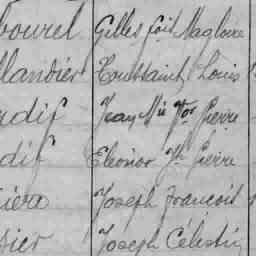 bourel Gilles fait Magloire
llandier Toussaint Louis
adif Jean Mie Vor Pierre
dif Eléonor Jh Pierre
ière Joseph François
sier Joseph Célestin